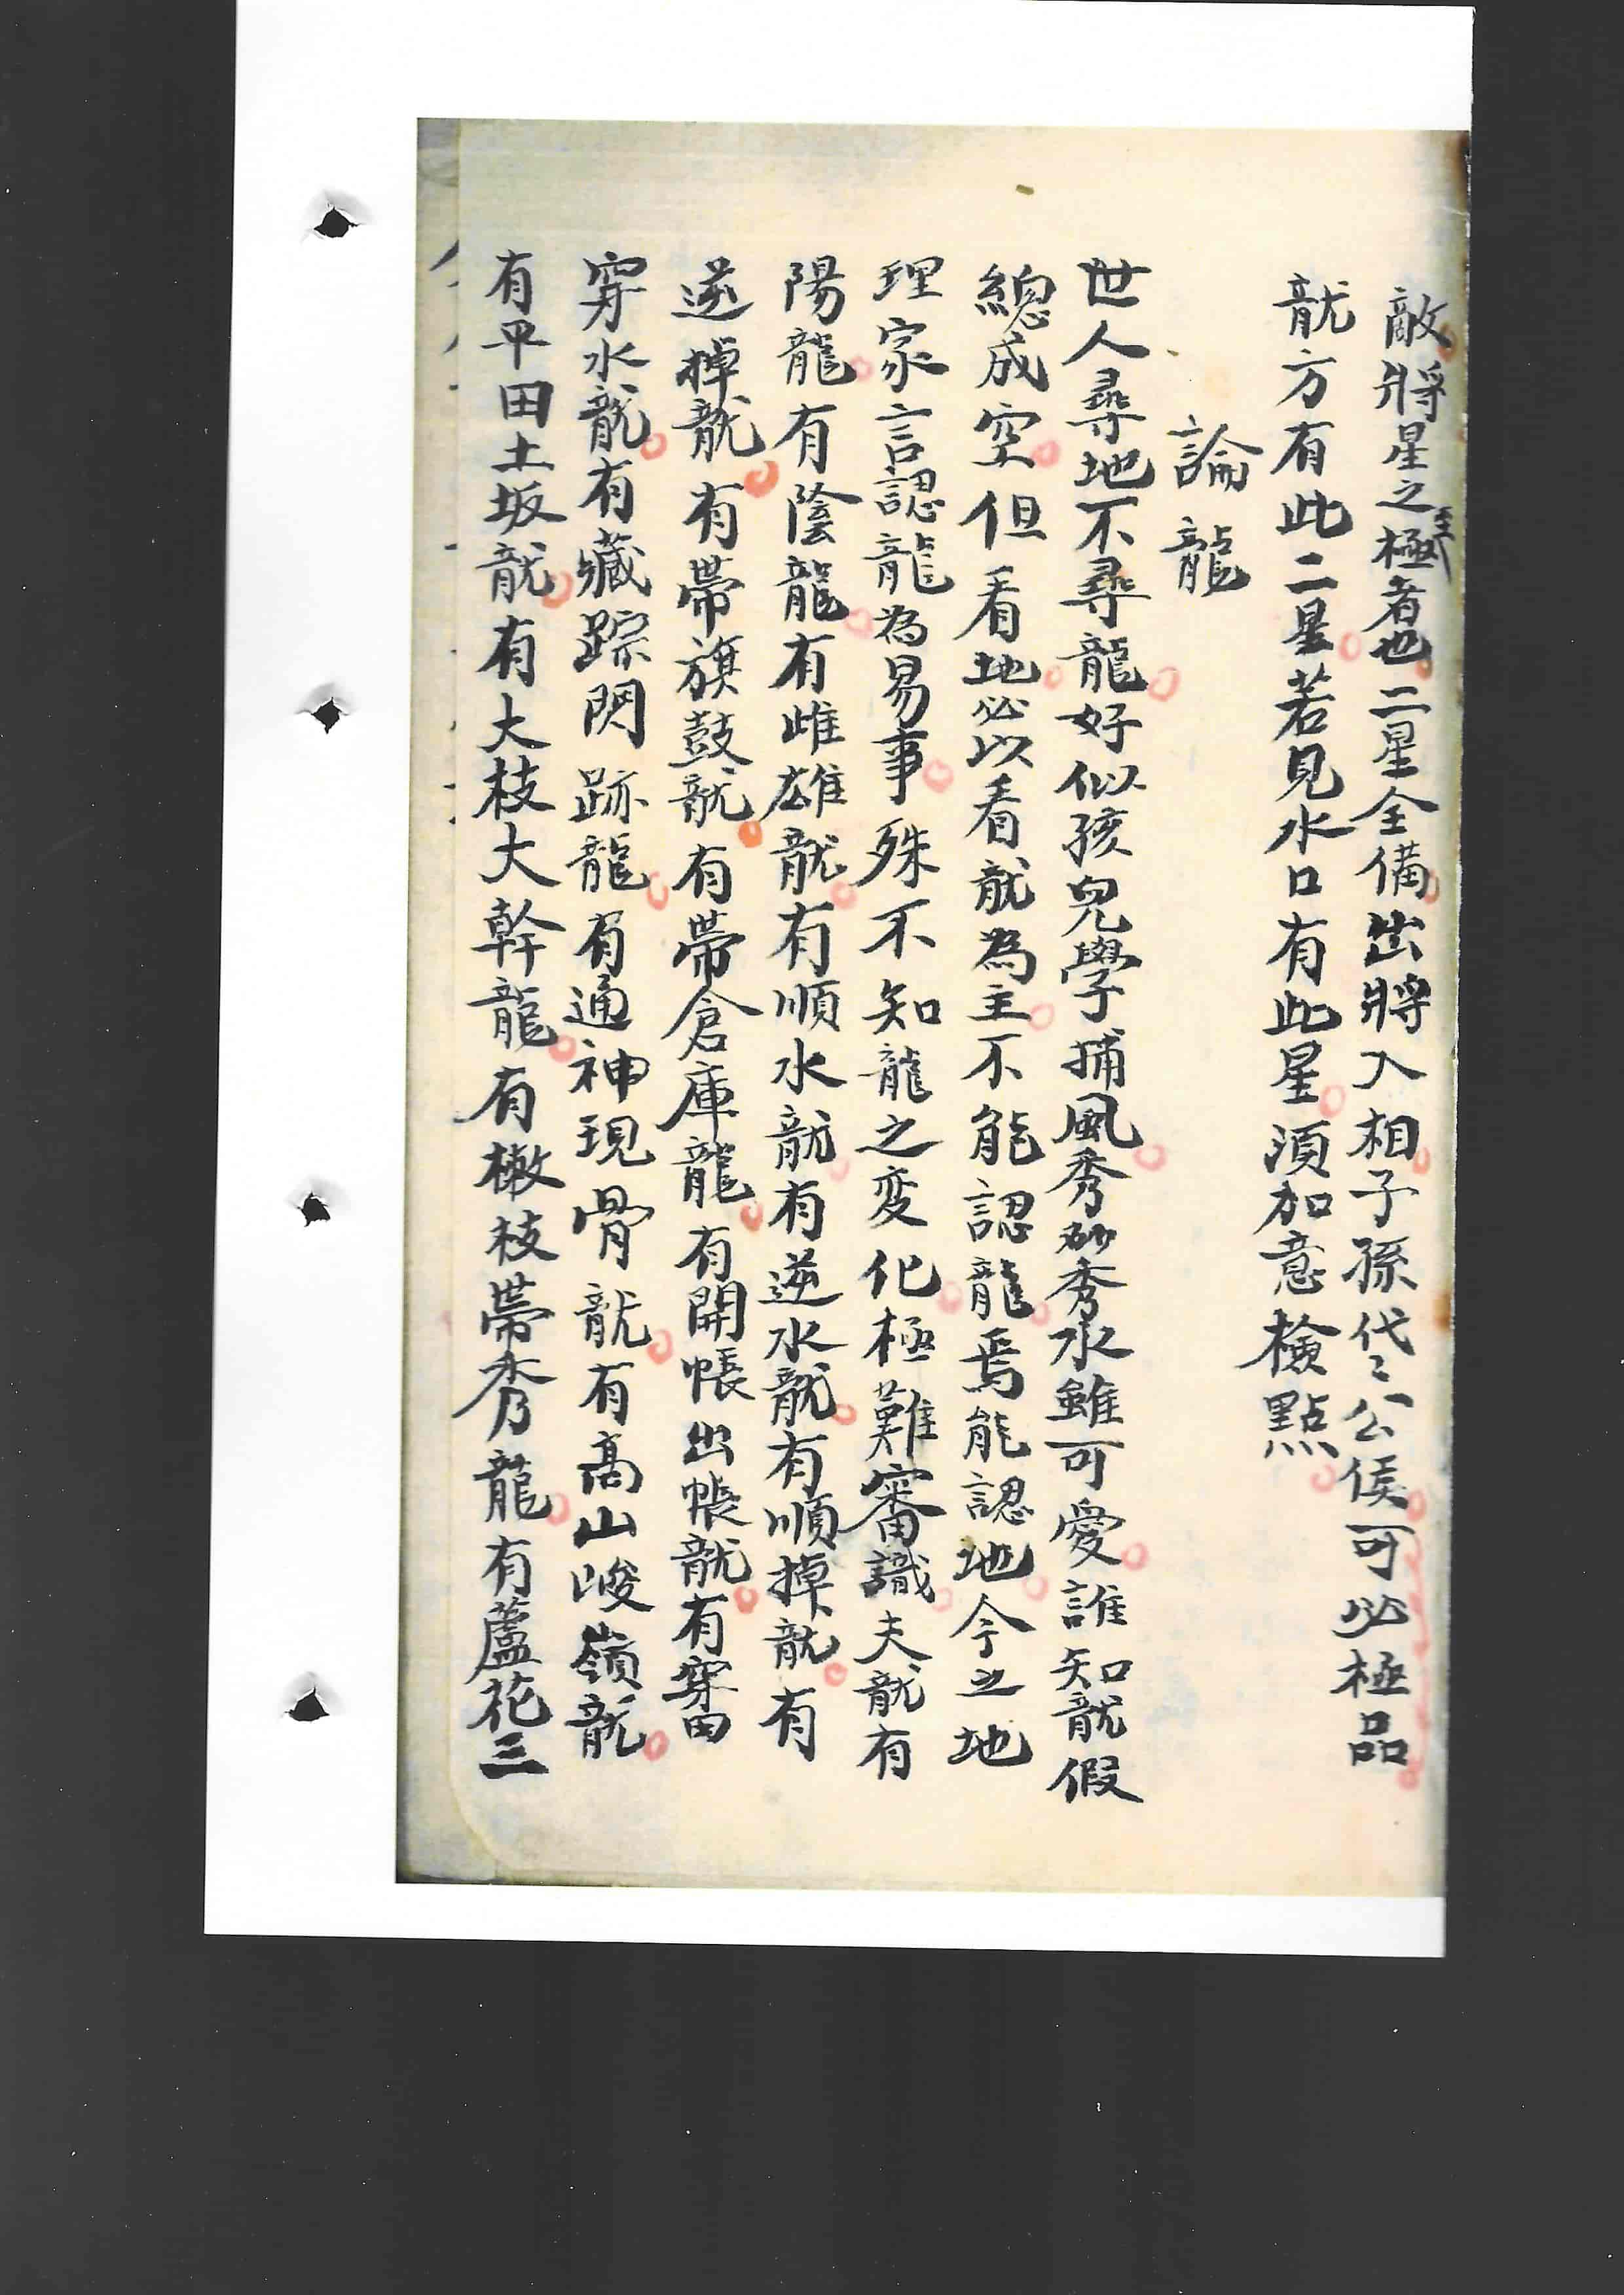 敵將星之至極者也二星全備出將入相子孫代〻公侯可必極品
龍方有此二星若見水口有此星須加意檢點
論龍
世人尋地不尋龍好似孩兒學捕風秀砂秀水雖可愛誰知龍假
總成空但看地必以看龍為主不能認龍焉能認地今之地
理家言認龍為易事殊不知龍之变化極難審識夫龍有
陽龍有陰龍有雌雄龍有順水龍有逆水龍有順掉龍有
逆掉龍有帶旗鼓龍有帶倉庫龍有開帳出帳龍有穿田
穿水龍有藏踪閃跡龍有通神現骨龍有高山峻嶺龍
有平田土坂龍有大枝大幹龍有橄枝帶秀龍有蘆花三